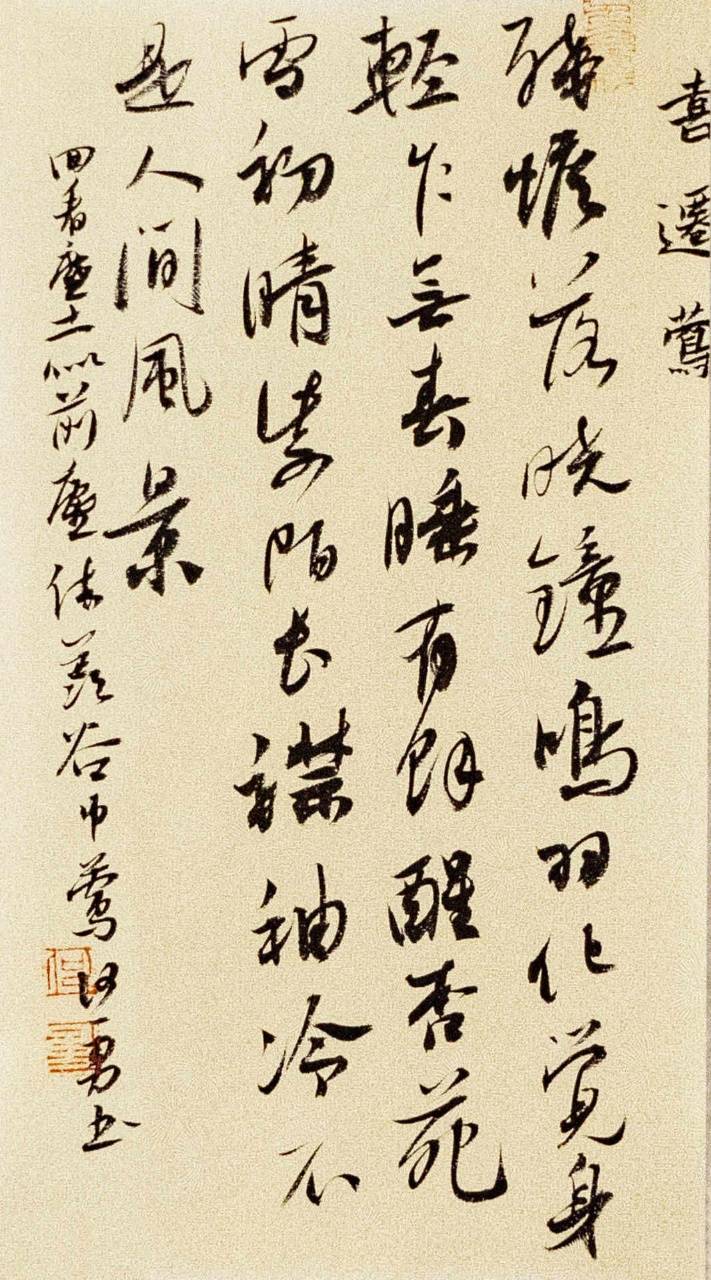 喜遷鶯
殘蟾落曉鐘鳴羽化覺身
輕乍無春睡有餘醒杏苑
雪初晴紫陌長襟袖冷不
是人間風景
回看塵土似前塵休羨谷中鶯 勇書